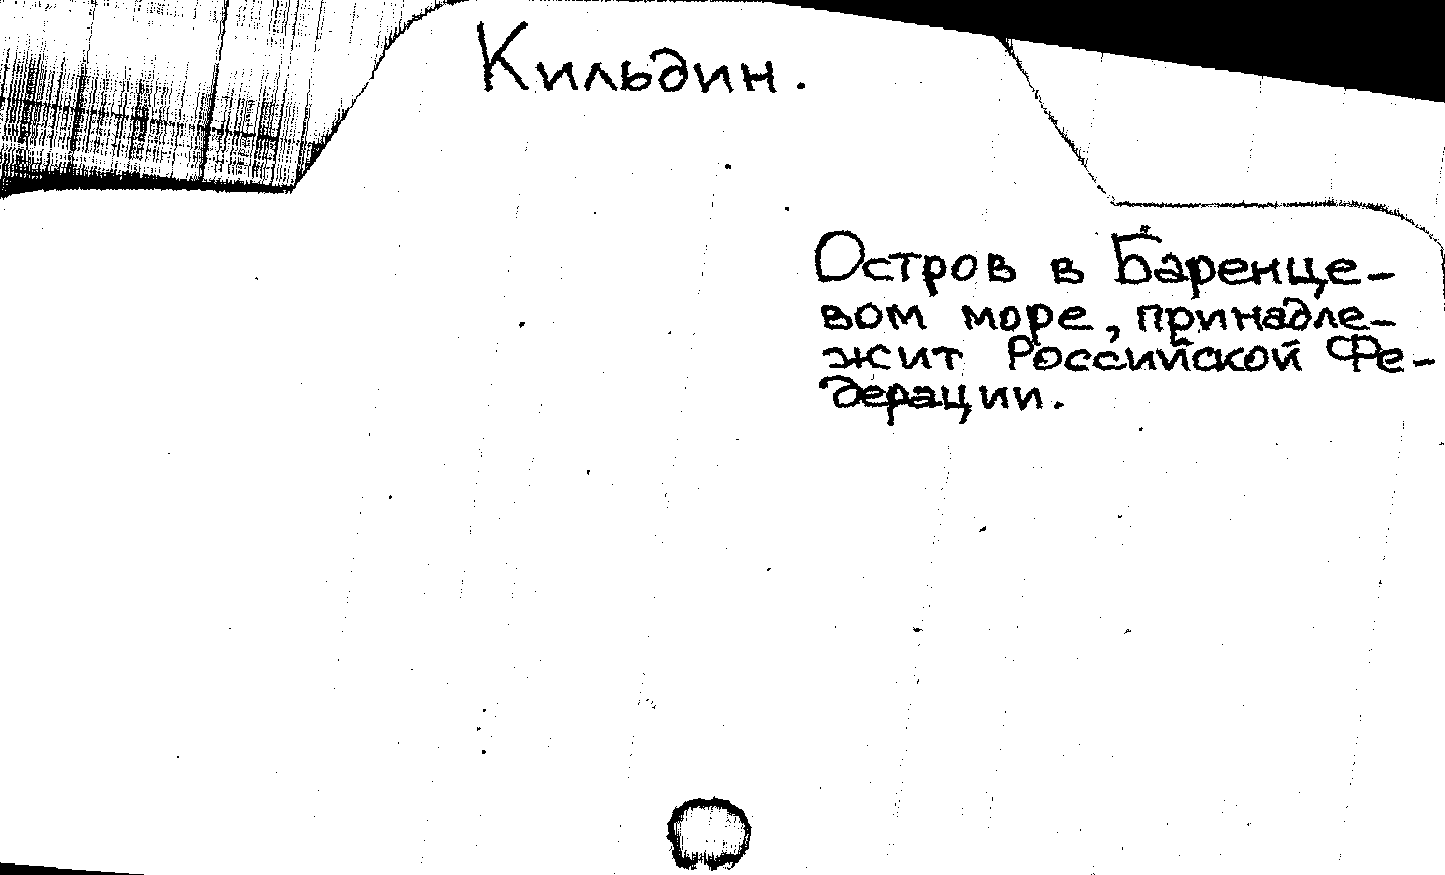 Кильдин.
Остров в Баренце-
вом море, принадле-
жит Российской Фе-
дерации.